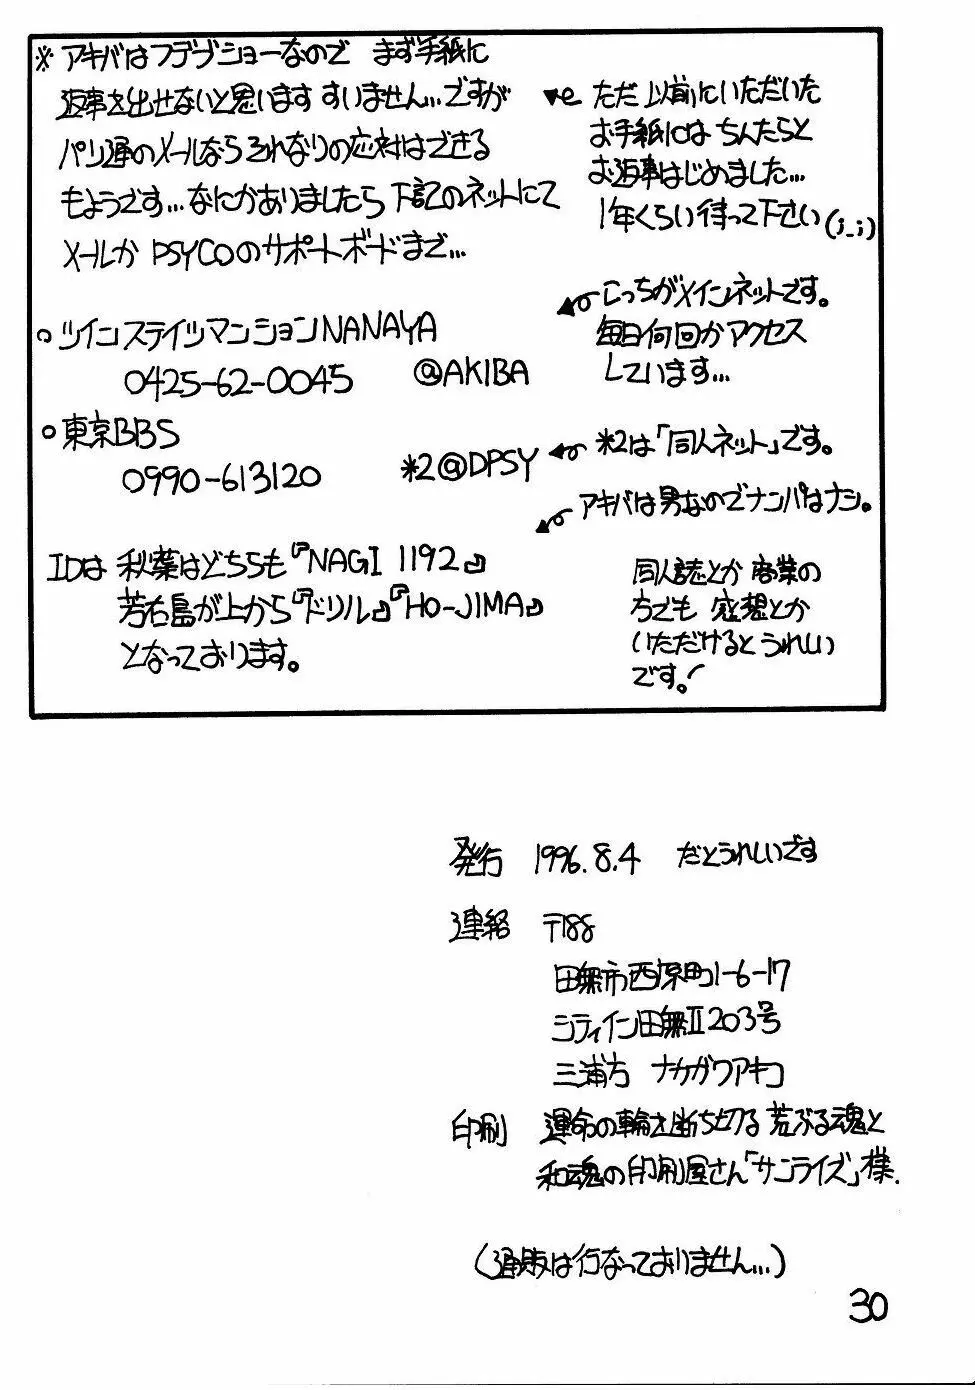 ※アキバはフデブショーなので まず手紙に
返事を出せないと思います すいません…ですが
パソ通のメールなら それなりの応対はできる
もようです…なにかありましたら 下記のネットにて
メールか PSYCOのサポートボードまで…
ただ 以前にいただいた
お手紙には ちんたらと
お返事はじめました…
1年くらい待って下さい(;_;)
○ツインステイツマンションNANAYA
0425-62-0045 @AKIBA
こっちがメインネットです。
毎日何回かアクセス
しています…
○東京BBS
0990-613120 *2@DPSY
*2は「同人ネット」です。
アキバは男なのでナンパはナシ。
IDは 秋葉はどちらも『NAGI 1192』
芳右島が上から『ドリル』『HO-JIMA』
となっております。
同人誌とか 商業の
方でも 感想とか
いただけると うれしい
です。!
発行 1996.8.4 だとうれしいです
連絡 〒188
田無市西原町1-6-17
シティイン田無Ⅱ203号
三浦方 ナカガワアキコ
印刷 運命の輪を断ち切る 荒ぶる魂と
和魂の印刷屋さん「サンライズ」様.
(通販は行なっておりません…)
30